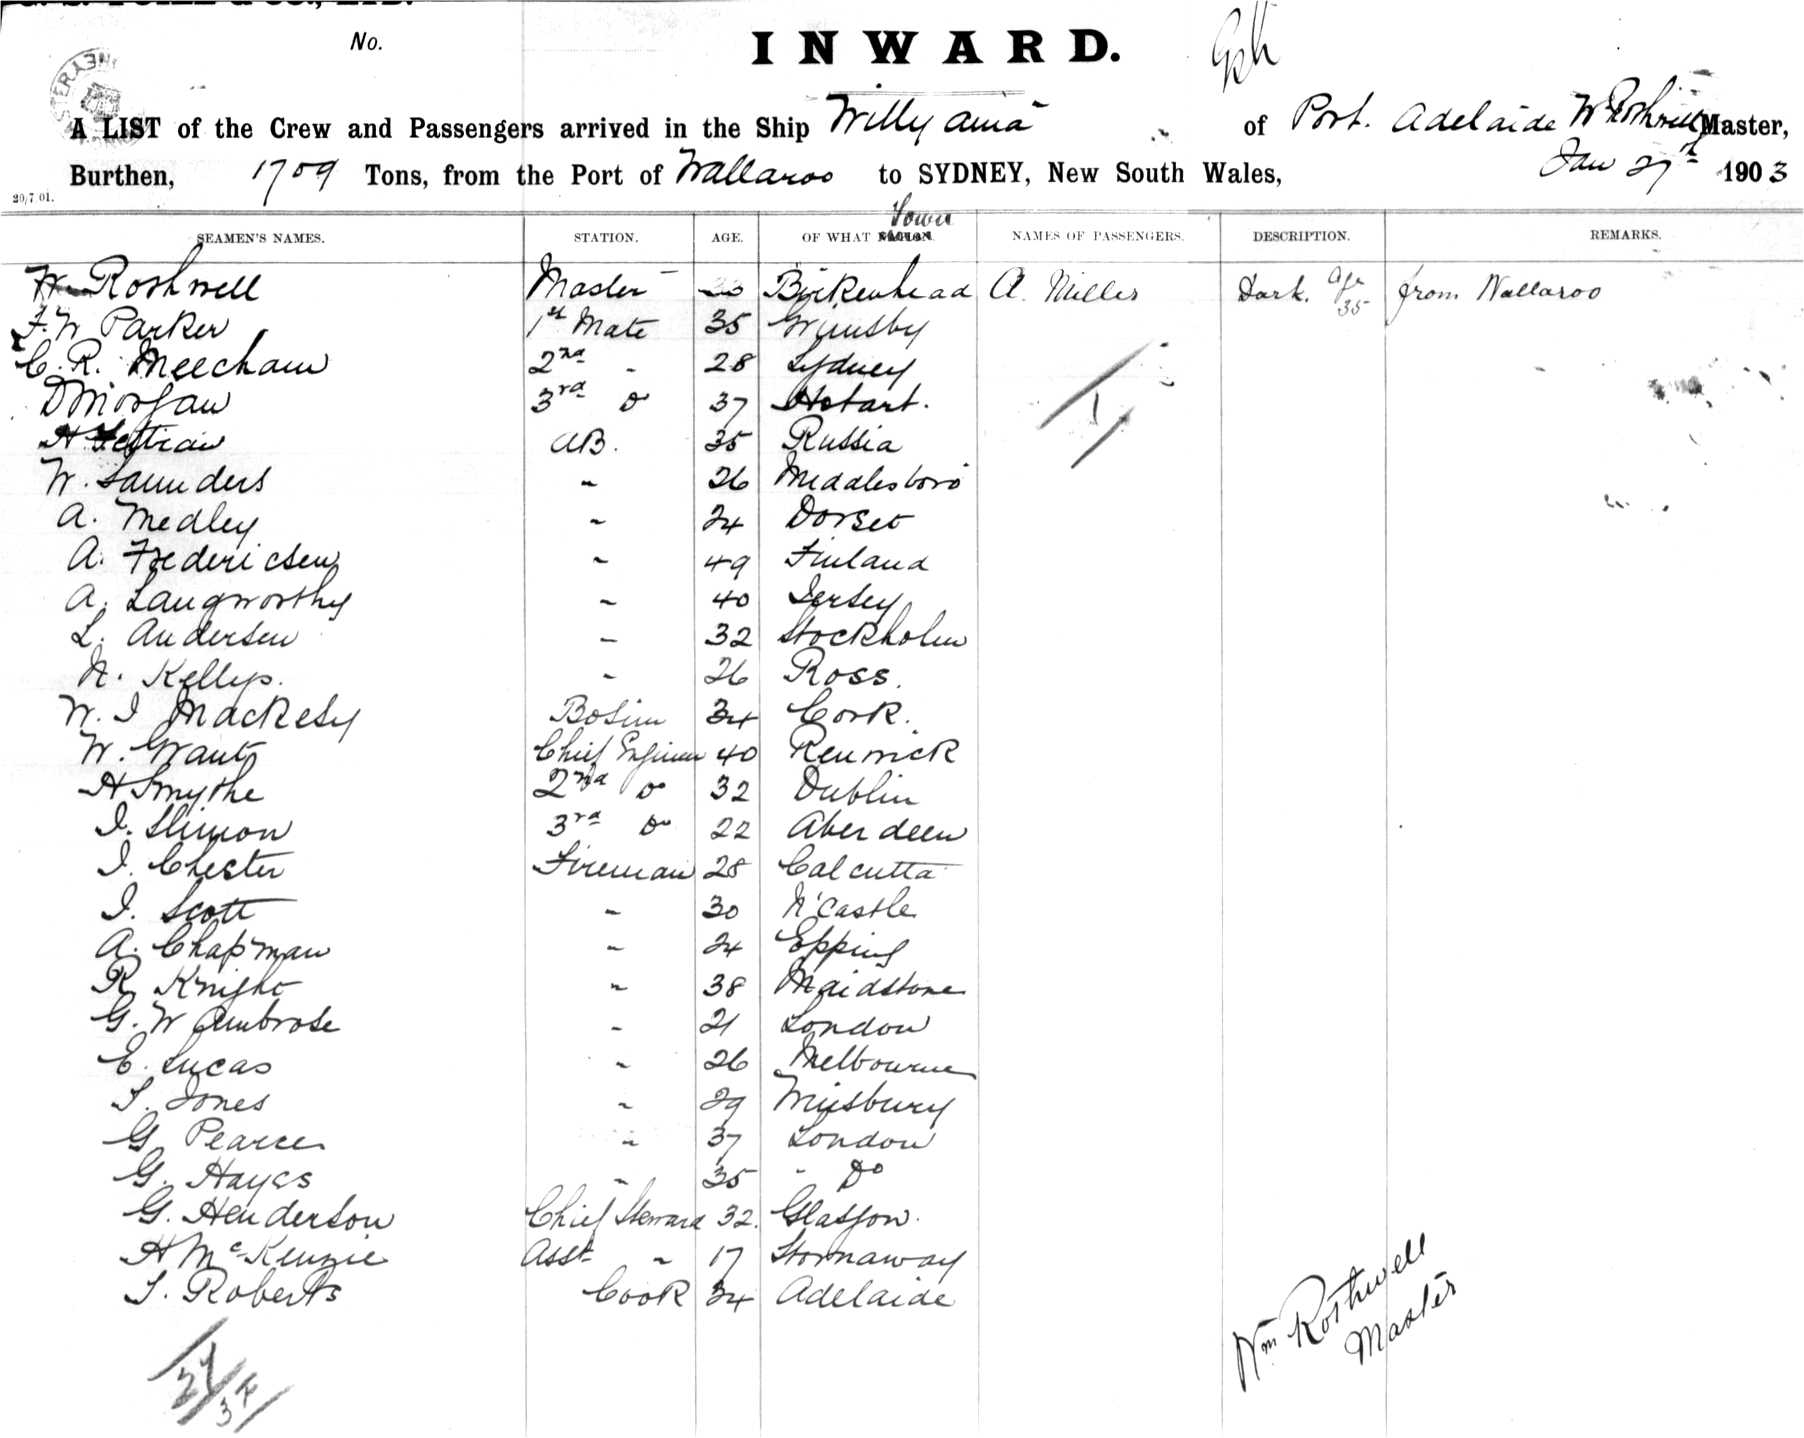 No.
INWARD.
A LIST of the Crew and Passengers arrived in the Ship Willyama of Port. Adelaide W Rothwell Master,
Burthen, 1709 Tons, from the Port of Wallaroo to SYDNEY, New South Wales, Jan 27th 1903
20/7/01.
Town
SEAMEN'S NAMES. STATION. AGE. OF WHAT NAMES OF PASSENGERS. DESCRIPTION. REMARKS.
W Rothwell Master Birkenhead A. Miller Dark. age 35 from Wallaroo
F. W Parker 1st Mate 35 Grimsby
C. R. Meecham 2nd " 28 Sydney
D Morgan 3rd Do 37 Hobart.
H AB. 35 Russia
W. Saunders " 26 Middlesboro
A. Medley " 24 Dorset
A. Fredericsen " 49 Finland
A. Langworthy " 40 Jersey
L. Andersen " 32 Stockholm
N. Kellys. " 26 Ross.
W. J Mackesy Bosun 34 Cork.
W. Grant Chief Engineer 40 Renwick
H Smythe 2nd Do 32 Dublin
J. Slimon 3rd Do 22 Aberdeen
J. Chester Fireman 28 Calcutta
J. Scott " 30 N'castle
A. Chapman " 24 Epping
R Knight " 38 Maidstone
G. W Ambrose " 21 London
E. Lucas " 26 Melbourne
S. Jones " 29
G Pearce " 37 London
G. Hayes " 35 " Do
G. Henderson Chief Steward 32. Glasgow.
H McKenzie Asst " 17 Stornaway
S. Roberts Cook 34 Adelaide
Wm Rothwell
Master